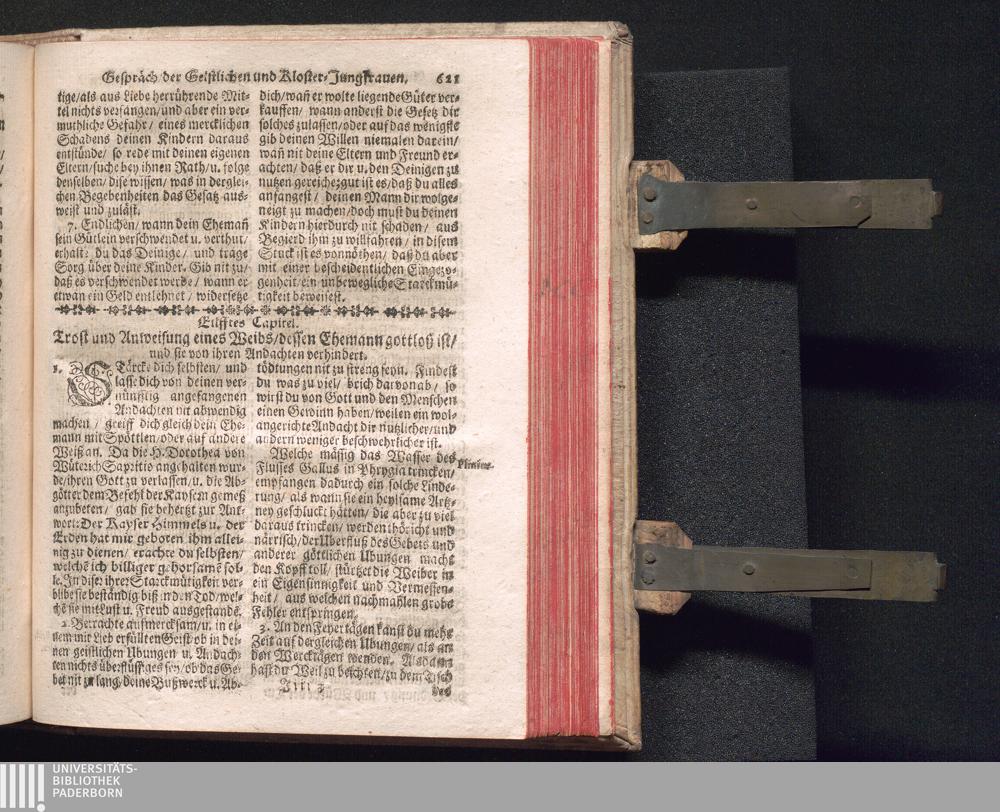 Gespräch der Geistlichen und Kloster-Jungfrauen. 621
tige/als aus Liebe herrührende Mit-
tel nichts verfangen/und aber ein ver-
muthliche Gefahr/ eines mercklichen
Schadens deinen Kindern daraus
entstünde/ so rede mit deinen eigenen
Eltern/suche bey ihnen Rath/u. folge
denselben/ dise wissen/ was in derglei-
chen Begebenheiten das Gesatz aus-
weist und zuläst.
7. Endlichen/ wann dein Ehemañ
sein Gütlein verschwendet u. verthut/
erhalte du das Deinige/ und trage
Sorg über deine Kinder. Gib nit zu/
daß es verschwendet werde/ wann er
etwan ein Geld entlehnet/ widersetze
dich/wañ er wolte liegende Güter ver-
kauffen/ wann anderst die Gesetz dir
solches zulassen/oder auf das wenigste
gib deinen Willen niemalen darein/
wañ nit deine Eltern und Freund er-
achten/ daß er dir u. den Deinigen zu
nutzen gereiche; gut ist es/daß du alles
anfangest/ deinen Mann dir wolge-
neigt zu machen/doch must du deinen
Kindern hierdurch nit schaden/ aus
Begierd ihm zu willfahren/ in disem
Stuck ist es vonnöthen/ daß du aber
mit einer bescheidentlichen Eingezo-
genheit/ein unbewegliche Starckmü-
tigkeit beweisest.
Eilfftes Capitel.
Trost und Anweisung eines Weibs/dessen Ehemann gottloß ist/
und sie von ihren Andachten verhindert.
1. STärcke dich selbsten/ und
lasse dich von deinen ver-
nünfftig angefangenen
Andachten nit abwendig
machen/ greiff dich gleich dein Ehe-
mann mit Spöttlen/oder auf andere
Weiß an. Da die H. Dorothea von
Wüterich Sapritio angehalten wur-
de/ihren Gott zu verlassen/u. die Ab-
götter dem Befehl der Kaysern gemeß
anzubeten/ gab sie behertzt zur Ant-
wort: Der Kayser Himmels u. der
Erden hat mir geboten ihm allei-
nig zu dienen/ erachte du selbsten/
welchē ich billiger gehorsamē sol-
le. In diser ihrer Starckmütigkeit ver-
blibe sie beständig biß in den Tod/wel-
chē sie mit Lust u. Freud ausgestandē.
2. Betrachte aufmercksam/u. in ei-
nem mit Lieb erfüllten Geist ob in dei-
nen geistlichen Ubungen u. Andach-
ten nichts überflüssiges sey/ob das Ge-
bet nit zu lang/deine Bußwerck u. Ab-
tödtungen nit zu streng seyn. Findest
du was zu viel/ brich darvon ab/ so
wirst du von Gott und den Menschen
einen Gewinn haben/weilen ein wol-
angerichte Andacht dir nutzlicher/und
andern weniger beschwehrlicher ist.
Welche mässig das Wasser des
Flusses Gallus in Phrygia trincken/
empfangen dadurch ein solche Linde-
rung/ als wann sie ein heylsame Artz-
ney geschluckt hätten/ die aber zu viel
daraus trincken/ werden thöricht und
närrisch/der Uberfluß des Gebets und
anderer göttlichen Ubungen macht
den Kopff toll/ stürtzet die Weiber in
ein Eigensinnigkeit und Vermessen-
heit/ aus welchen nachmahlen grobe
Fehler entspringen.
3. An den Feyertägen kanst du mehr
Zeit auf dergleichen Ubungen/ als an
den Werckägen wenden. Alsdann
hast du Weil zu beichten/zu dem Tisch
Plinius.
Iiii 3
des
UNIVERSITÄTS-
BIBLIOTHEK
PADERBORN